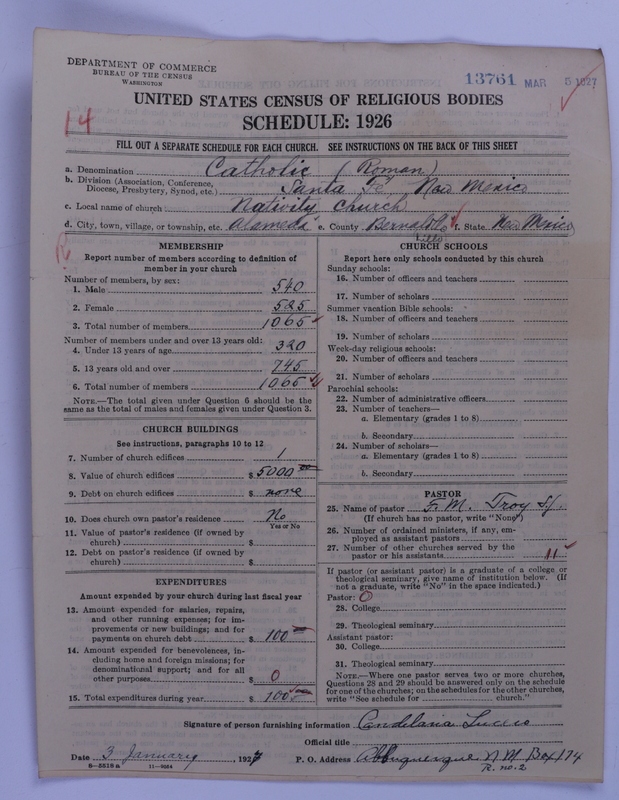 DEPARTMENT OF COMMERCE
BUREAU OF THE CENSUS
WASHINGTON
13761 MAR 5 1927
UNITED STATES CENSUS OF RELIGIOUS BODIES
SCHEDULE: 1926
14
FILL OUT A SEPARATE SCHEDULE FOR EACH CHURCH. SEE INSTRUCTIONS ON THE BACK OF THIS SHEET
a. Denomination Catholic (Roman)
b. Division (Association, Conference, Diocese, Presbytery, Synod, etc.) Santa Fe, New Mexico
c. Local name of church Nativity Church
d. City, town, village, or township, etc. Alameda e. County Bernalillo f. State New Mexico
MEMBERSHIP
Report number of members according to definition of
member in your church
Number of members, by sex:
1. Male 540
2. Female 525
3. Total number of members 1065
Number of members under and over 13 years old:
4. Under 13 years of age 320
5. 13 years old and over 745
6. Total number of members 1065
NOTE.—The total given under Question 6 should be the
same as the total of males and females given under Question 3.
CHURCH BUILDINGS
See instructions, paragraphs 10 to 12
7. Number of church edifices 1
8. Value of church edifices $ 5000 00
9. Debt on church edifices $ none
10. Does church own pastor's residence No
Yes or No
11. Value of pastor's residence (if owned by
church) $
12. Debt on pastor's residence (if owned by
church) $
EXPENDITURES
Amount expended by your church during last fiscal year
13. Amount expended for salaries, repairs,
and other running expenses; for im-
provements or new buildings; and for
payments on church debt $ 100
14. Amount expended for benevolences, in-
cluding home and foreign missions; for
denominational support; and for all
other purposes $ 0
15. Total expenditures during year $ 100
CHURCH SCHOOLS
Report here only schools conducted by this church
Sunday schools:
16. Number of officers and teachers
17. Number of scholars
Summer vacation Bible schools:
18. Number of officers and teachers
19. Number of scholars
Week-day religious schools:
20. Number of officers and teachers
21. Number of scholars
Parochial schools:
22. Number of administrative officers
23. Number of teachers—
a. Elementary (grades 1 to 8)
b. Secondary
24. Number of scholars—
a. Elementary (grades 1 to 8)
b. Secondary
PASTOR
25. Name of pastor F. M. Troy S.J.
(If church has no pastor, write "None")
26. Number of ordained ministers, if any, em-
ployed as assistant pastors
27. Number of other churches served by the
pastor or his assistants 11
If pastor (or assistant pastor) is a graduate of a college or
theological seminary, give name of institution below. (If
not a graduate, write "No" in the space indicated.)
Pastor: 0
28. College
29. Theological seminary
Assistant pastor:
30. College
31. Theological seminary
NOTE.—Where one pastor serves two or more churches,
Questions 28 and 29 should be answered only on the schedule
for one of the churches; on the schedules for the other churches,
write "See schedule for church."
Signature of person furnishing information Candelaria Lucero
Official title
Date 3 January, 1927 P. O. Address Albuquerque N M Box 174
8—5518a 11—9054 R. no. 2